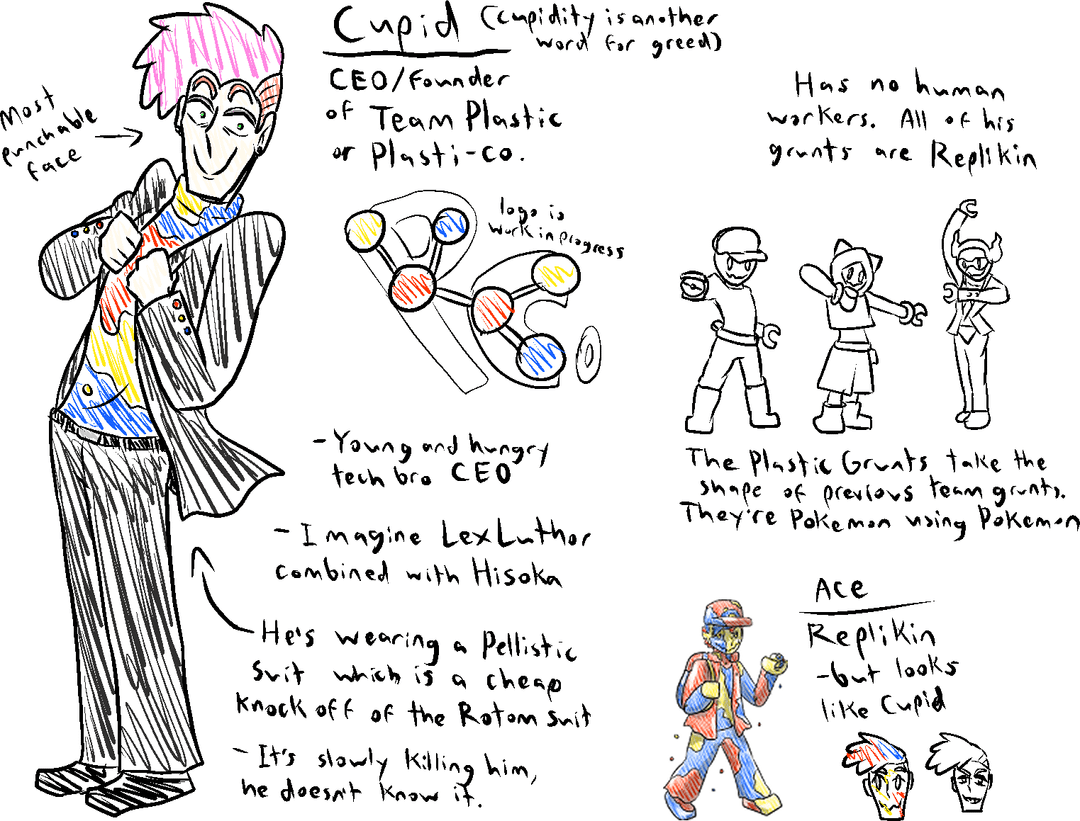 Cupid (Cupidity is another
word for greed)
CEO/Founder
of Team Plastic
or Plasti-co.
Most
punchable
face
logo is
work in progress
Has no human
workers. All of his
grunts are Replikin
The Plastic Grunts take the
shape of previous team grunts.
They're Pokemon using Pokemon
- Young and hungry
tech bro CEO
- Imagine Lex Luthor
combined with Hisoka
He's wearing a Pellistic
suit which is a cheap
knock off of the Rotom suit
- It's slowly killing him,
he doesn't know it.
Ace
Replikin
- but looks
like Cupid